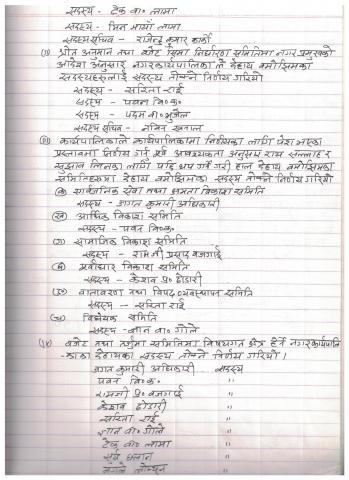 सदस्य - टेक ब० लामा
सदस्य - मिन माया लामा
सदस्य सचिव - राजेन्द्र कुमार कार्की
श्रोत अनुमान तथा बजेट सिमा निर्धारण समितिमा नगर प्रमुखको
आदेश अनुसार नगरकार्यपालिकाले देहाय बमोजिमका
सदस्यहरुलाई सदस्य तोक्ने निर्णय गरियो
सदस्य - सरिता राई
सदस्य - पवन वि०क०
सदस्य - पदम ब० भुजेल
सदस्य सचिव - नविन खनाल
कार्यपालिकाले कार्यपालिकामा निर्णयका लागि पेश भएका
प्रस्तावमा निर्णय गर्नु पूर्व आवश्यकता अनुसार राय सल्लाह र
सुझाव लिनका लागि थप गर्ने गरी हाल देहाय बमोजिमका
समितिहरुमा देहाय बमोजिमका सदस्य तोक्ने निर्णय गरियो
(क) सार्वजनिक सेवा तथा क्षमता विकास समिति
सदस्य - जगत कुमारी अधिकारी
(ख) आर्थिक विकास समिति
सदस्य - पवन वि०क०
(ग) सामाजिक विकास समिति
सदस्य - रामजी प्रसाद बजगाई
(घ) पूर्वाधार विकास समिति
सदस्य - केशव प्र० ढोडारी
(ङ) वातावरण तथा विपद व्यवस्थापन समिति
सदस्य - सरिता राई
(च) विधेयक समिति
सदस्य - ज्ञान ब० गोले
बजेट तथा तर्जुमा समितिमा विषयगत क्षेत्र हेर्ने नगरकार्यपालि-
काका देहायका सदस्य तोक्ने निर्णय गरियो।
जगत कुमारी अधिकारी सदस्य
पवन वि० क० "
रामजी प्र० बजगाई "
केशव ढोडारी "
सरिता राई "
ज्ञान ब० गोले "
टेक ब० लामा "
सूर्य "
मंगले "